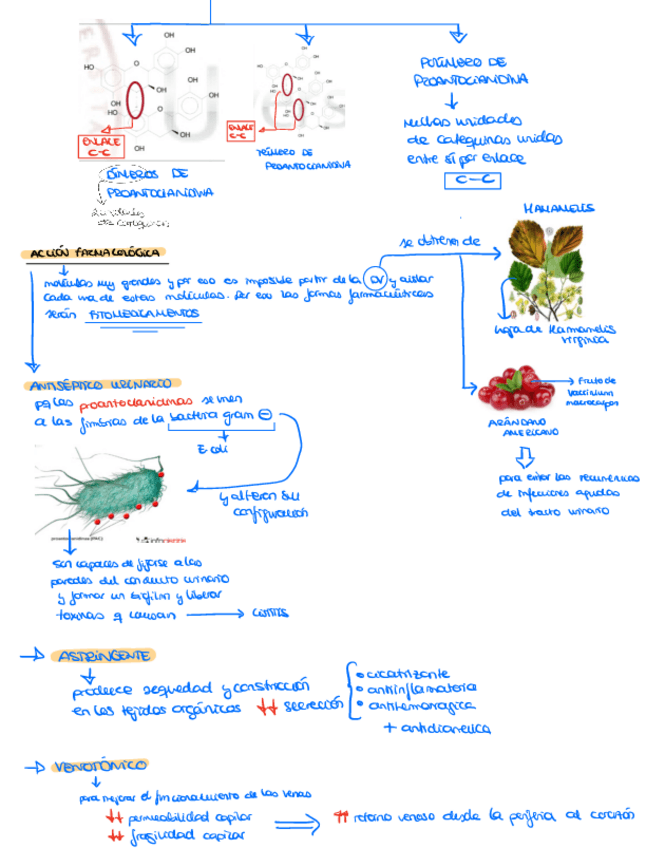 OH
OH
HO
OH
OH
OH
HO
OH
OH
ENLACE
C-C
DÍMEROS DE
PROANTOCIANIDINA
2 unidades
de catequinas
ENLACE
C-C
TRÍMERO DE
PROANTOCIANIDINA
POLÍMERO DE
PROANTOCIANIDINA
Muchas unidades
de catequinas unidas
entre sí por enlace
C-C
ACCIÓN FARMACOLÓGICA
moléculas muy grandes y por eso es imposible partir de la y aislar
cada una de estas moléculas. Por eso las formas farmacéuticas
serán FITOMEDICAMENTOS
se obtienen de
HAMAMELIS
hoja de Hamamelis
virginica
Fruto de
Vaccinium
macrocarpon
ARÁNDANO
AMERICANO
para evitar las recurrencias
de infecciones agudas
del tracto urinario
ANTISÉPTICO URINARIO
pq las proantocianidinas se unen
a las fimbrias de la bacteria gram ⊖
E coli
y alteran su
configuración
proantocianidinas (PAC)
son capaces de fijarse a las
paredes del conducto urinario
y formar un biofilm y liberar
toxinas q causan → CISTITIS
→ ASTRINGENTE
produce sequedad y constricción
en los tejidos orgánicos ↓↓ secreción
• cicatrizante
• antiinflamatoria
• antihemorrágica
+ antidiarreica
→ VENOTÓNICO
para mejorar el funcionamiento de las venas
↓↓ permeabilidad capilar
↓↓ fragilidad capilar
⇒ ↑↑ retorno venoso desde la periferia al corazón